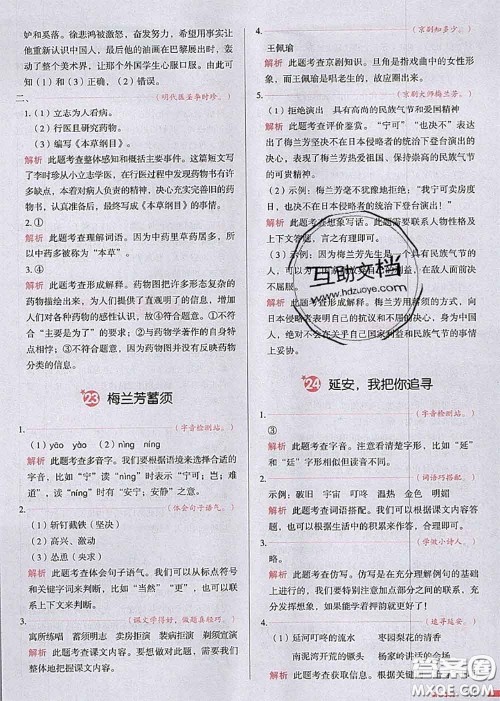 妒和英落。徐悲鸿被激怒，奋发努力，希望用事实让
他重新认识中国人，于是，他后来的油画在巴黎展出时，轰
动了整个美术界，让那个外国学生心服口服。由此可
知（1）和（3）正确，（2）错误。
二、
（明代医圣李时珍。）
1.（1）立志为人看病。
（2）行医且研究药物。
（3）编写《本草纲目》
解析 此题考查整体感知和概括主要事件。这篇短文写
了李时珍小立志学医，在行医过程中发现药物书有许
多缺点，本着对病人负责的精神，决心充实完善旧的药物
书，认真准备，最终写成《本草纲目》的事情。
2.①
解析 此题考查理解词语。因为中草药里草药居多，所
以中药书大都叫本草。
3.④
解析 此题考查形成解释。药物图把许多形态复杂的
药物描绘出来，为人们提供了直观明了的信息，增加了
人们对各种药物的感性认识，故④最符合题意。①不符
合“主要是为了”的要求；②与药物学著作的表达特点
不相符；③不符合题意，因为药物图并没有反映药物
分类的信息。
23 梅兰芳蓄须
1.
（字音检测站。）
（1）yào yáo （2）nìng níng
解析 此题考查多音字。我们要根据语境来选择合适的
字音，比如“宁”读“nìng”时有“宁可；岂；难
道”，读“níng”时有“安宁，安静”之意。
2.
（体会句子语气。）
（1）斩钉截铁（坚决）
（2）高兴、激动
（3）怂恿（央求）
解析 此题考查体会句子语气。我们可以从标点符号
和关键字词来判断，比如“当然”“更”，也可以联系
上下文来判断。
3.
（课文学得好，做题真轻巧。）
寓房练唱 蓄须明志 卖房拒演 装病拒演 剃须宣演
解析 此题考查课文内容。我们要根据课文的描述，
整体地把握课文内容。
4.
（京剧知多少。）
王佩瑜
解析 此题考查京剧知识。旦角是指戏曲中的女性形
象，而王佩瑜是唱老生的，故应圈出来。
5.
（京剧大师梅兰芳。）
（1）拒绝演出 具有高尚的民族气节和爱国精神
解析 此题考查评价鉴赏。“宁可”“也决不”表达
了梅兰芳坚决不在日本侵略者的统治下登台演出的
决心，体现了梅兰芳热爱祖国，保持崇高的民族气节
的可贵精神。
（2）示例：梅兰芳毫不犹豫地拒绝：“我宁可卖房度
日，也决不在日本侵略者的统治下登台演出！”
解析 此题考查想象写话。此题需要联系人物性格及
上下文答题，言之有理即可。
（3）
解析 此题考查形成解释。梅兰芳用蓄须的方式，向
日本侵略者表示拒绝演出的决心，因为对他来说，演
出不仅仅会关乎自己国家利益和民族气节的事情，
决不妥协。
24 延安，我把你追寻
1.
（字音检测站。）
③
解析 此题考查字音。注意看清楚字形，比如“延”
和“廷”字形不同，读音也不同。
2.
（词语巧搭配。）
示例：破旧 宇宙 叮咚 温热 金色 明媚
解析 此题考查词语搭配。我们可以根据课文内容，
也可以根据日常生活中的积累来作答，合理即可。
3.
（学做小诗人。）
略。
解析 此题考查仿写。仿写是在充分理解例句的基
础上进行的，需要我们掌握例句的特点及结构，此外
还要注意语句通顺，合乎逻辑。
4.
（追寻延安。）
（1）延河叮咚的流水 枣园梨花的清香
南泥湾开荒的镢头 杨家岭讲话的会场
解析 此题考查获取信息。根据课文内容，我们可
互助文档
www.hdzuoye.com
答案圈
MXQE.COM